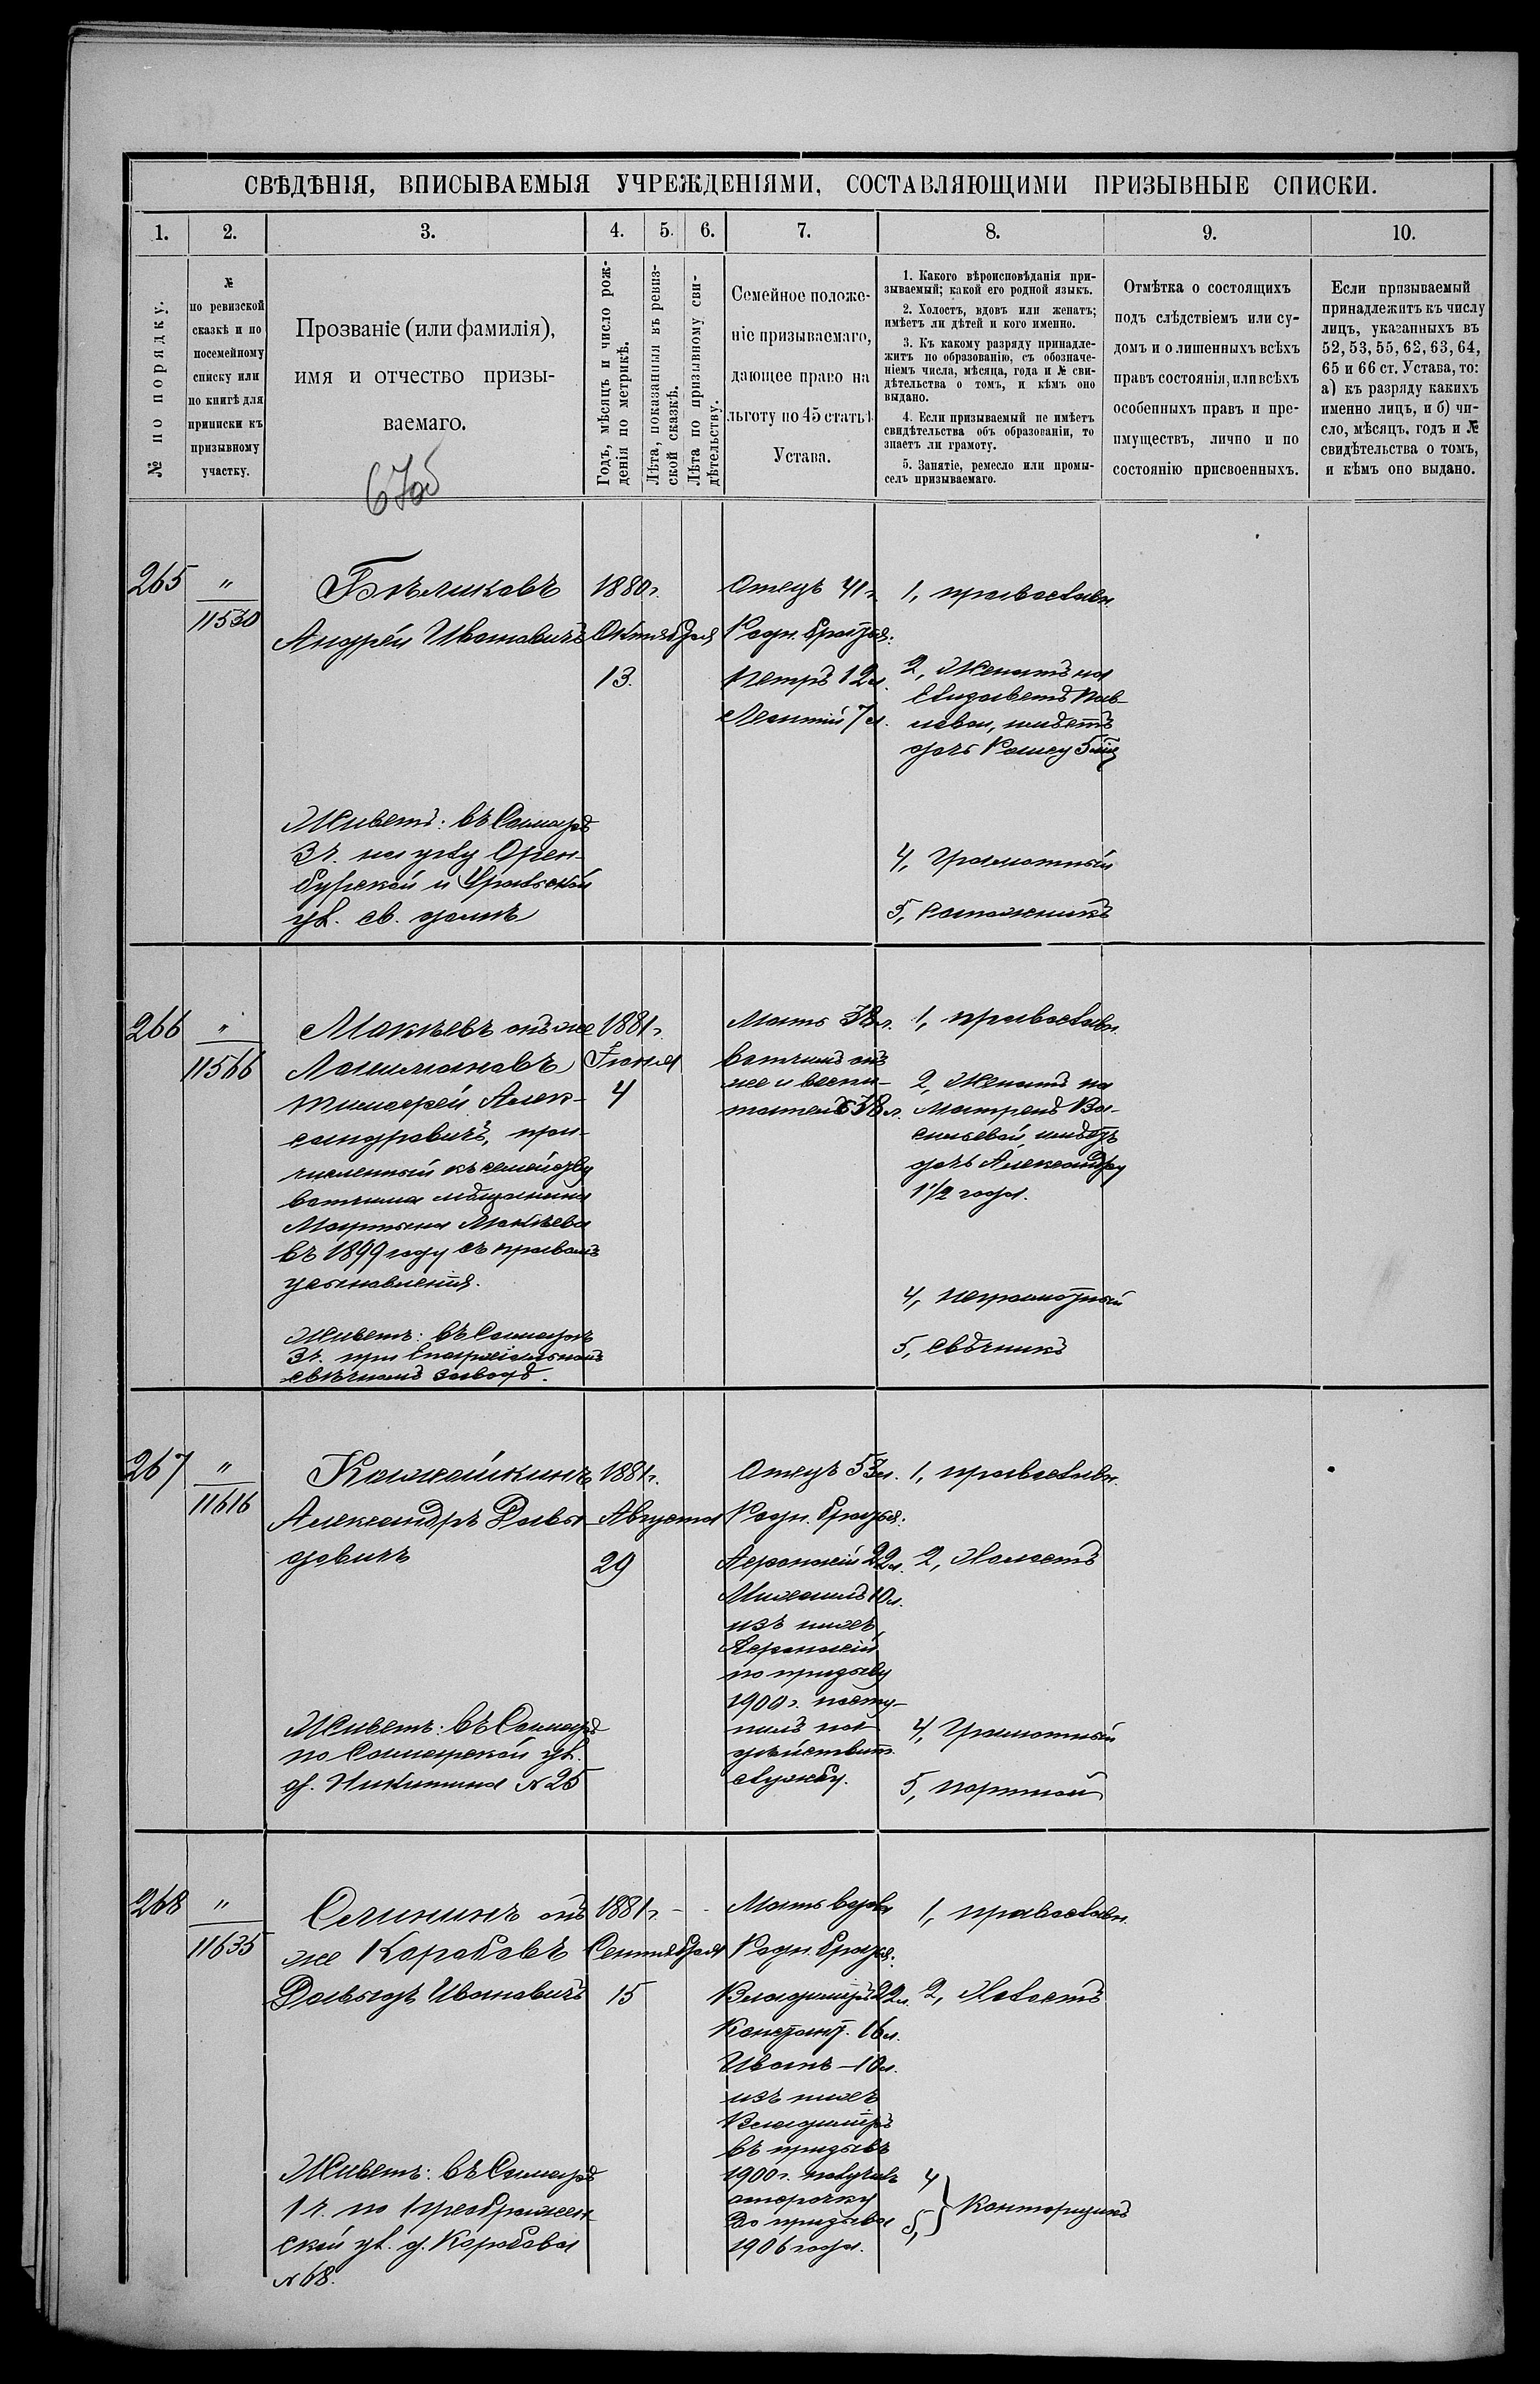 СВѢДѢНІЯ, ВПИСЫВАЕМЫЯ УЧРЕЖДЕНІЯМИ, СОСТАВЛЯЮЩИМИ ПРИЗЫВНЫЕ СПИСКИ.
1. 2. 3. 4. 5. 6. 7. 8. 9. 10.
№ по порядку.
№
по ревизской
сказкѣ и по
посемейному
списку или
по книгѣ для
приписки къ
призывному
участку.
Прозваніе (или фамилія),
имя и отчество призы-
ваемаго.
Годъ, мѣсяцъ и число рож-
денія по метрикѣ.
Лѣта, показанныя въ ревиз-
ской сказкѣ.
Лѣта по призывному сви-
дѣтельству.
Семейное положе-
ніе призываемаго,
дающее право на
льготу по 45 статьѣ
Устава.
1. Какого вѣроисповѣданія при-
зываемый; какой его родной языкъ.
2. Холостъ, вдовъ или женатъ;
имѣетъ ли дѣтей и кого именно.
3. Къ какому разряду принадле-
житъ по образованію, съ обозначе-
ніемъ числа, мѣсяца, года и № сви-
дѣтельства о томъ, и кѣмъ оно
выдано.
4. Если призываемый не имѣетъ
свидѣтельства объ образованіи, то
знаетъ ли грамоту.
5. Занятіе, ремесло или промы-
селъ призываемаго.
Отмѣтка о состоящихъ
подъ слѣдствіемъ или су-
домъ и о лишенныхъ всѣхъ
правъ состоянія, или всѣхъ
особенныхъ правъ и пре-
имуществъ, лично и по
состоянію присвоенныхъ.
Если призываемый
принадлежитъ къ числу
лицъ, указанныхъ въ
52, 53, 55, 62, 63, 64,
65 и 66 ст. Устава, то:
а) къ разряду какихъ
именно лицъ, и б) чи-
сло, мѣсяцъ, годъ и №
свидѣтельства о томъ,
и кѣмъ оно выдано.
265
"
11530
Бѣликовъ
Андрей Ивановичъ
Живетъ: въ Самарѣ
3 ч. на углу Орен-
бургской и Уральской
ул. св. домъ
1880 г.
Октября
13.
Отецъ 41 г.
Родн. братья:
Петръ 12 л.
Леонтій 7 л.
1, православн.
2, Женатъ на
Елизаветѣ Пав-
ловой, имѣетъ
дочь
4, Грамотный
5, Сапожникъ
266
"
11566
Макѣевъ онъ же
Тимофей Алек-
сандровичъ, при-
численный къ семейству
вотчима мѣщанина
Мартына Макѣева
въ 1899 году съ правомъ
усыновленія.
Живетъ: въ Самарѣ
3 ч. при Епархіальномъ
свѣчномъ заводѣ.
1881 г.
Іюня
4
Мать 38 л.
Вотчимъ онъ
же и воспи-
татель 38 л.
1, православн.
2, Женатъ на
Матренѣ Ва-
сильевой, имѣетъ
дочь Александру
1 1/2 года.
4, неграмотный
5, свѣчникъ
267
"
11616
Александръ Давы-
довичъ
Живетъ: въ Самарѣ
по Самарской ул.
д. Никитина № 25
1881 г.
Августа
29
Отецъ 53 л.
Родн. братья:
Афанасій 22 л.
Михаилъ 10 л.
изъ нихъ
Афанасій
по призыву
1900 г. посту-
пилъ на
дѣйствит.
службу.
1, православн.
2, Холостъ
4, Грамотный
5, портной
268
"
11635
Сечининъ онъ
же Коробовъ
Давыдъ Ивановичъ
Живетъ: въ Самарѣ
1 ч. по Преображен-
ской ул. д. Коробова
№ 68.
1881 г.
Сентября
15
Мать вдова
Родн. братья:
Владиміръ 22 л.
Констант. 16 л.
Иванъ — 10 л.
изъ нихъ
Владиміръ
въ призывъ
1900 г. получилъ
отсрочку
до призыва
1906 года.
1, православн.
2, Холостъ
4
5, } Конторщикъ